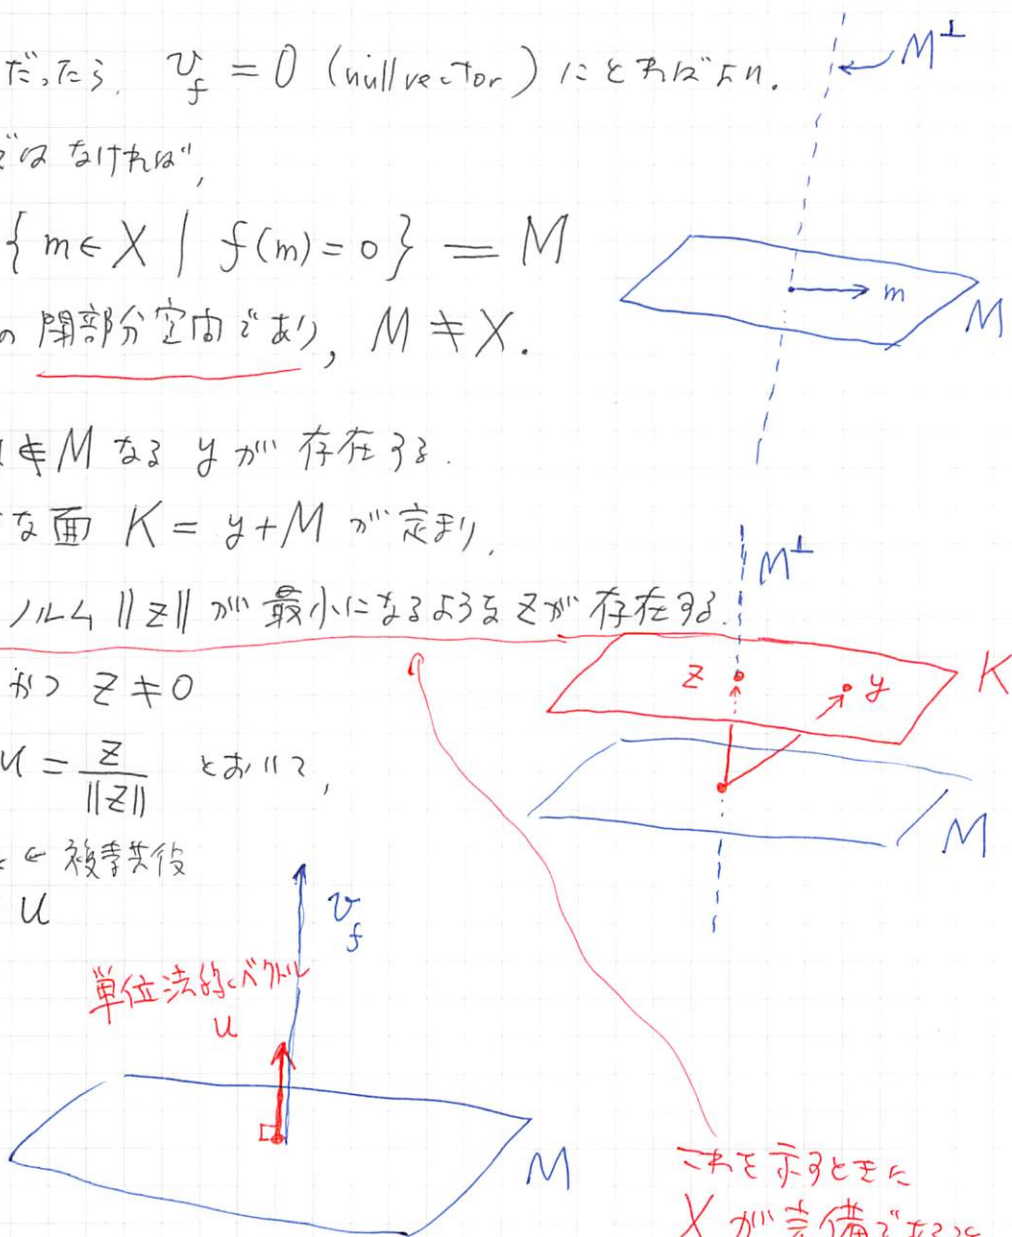 だったら, v_f = 0 (null vector) にとればよい.
M^⊥
ではなければ,
{ m ∈ X | f(m) = 0 } = M
m
M
の 閉部分空間であり, M ≠ X.
∉ M なる y が 存在する.
な面 K = y + M が 定まり,
M^⊥
ノルム ||z|| が 最小になるような z が 存在する.
K
z
y
かつ z ≠ 0
u = z / ||z|| とおいて,
M
← 複素共役
u
v_f
単位法線ベクトル
u
M
これを示すときに
X が 完備である